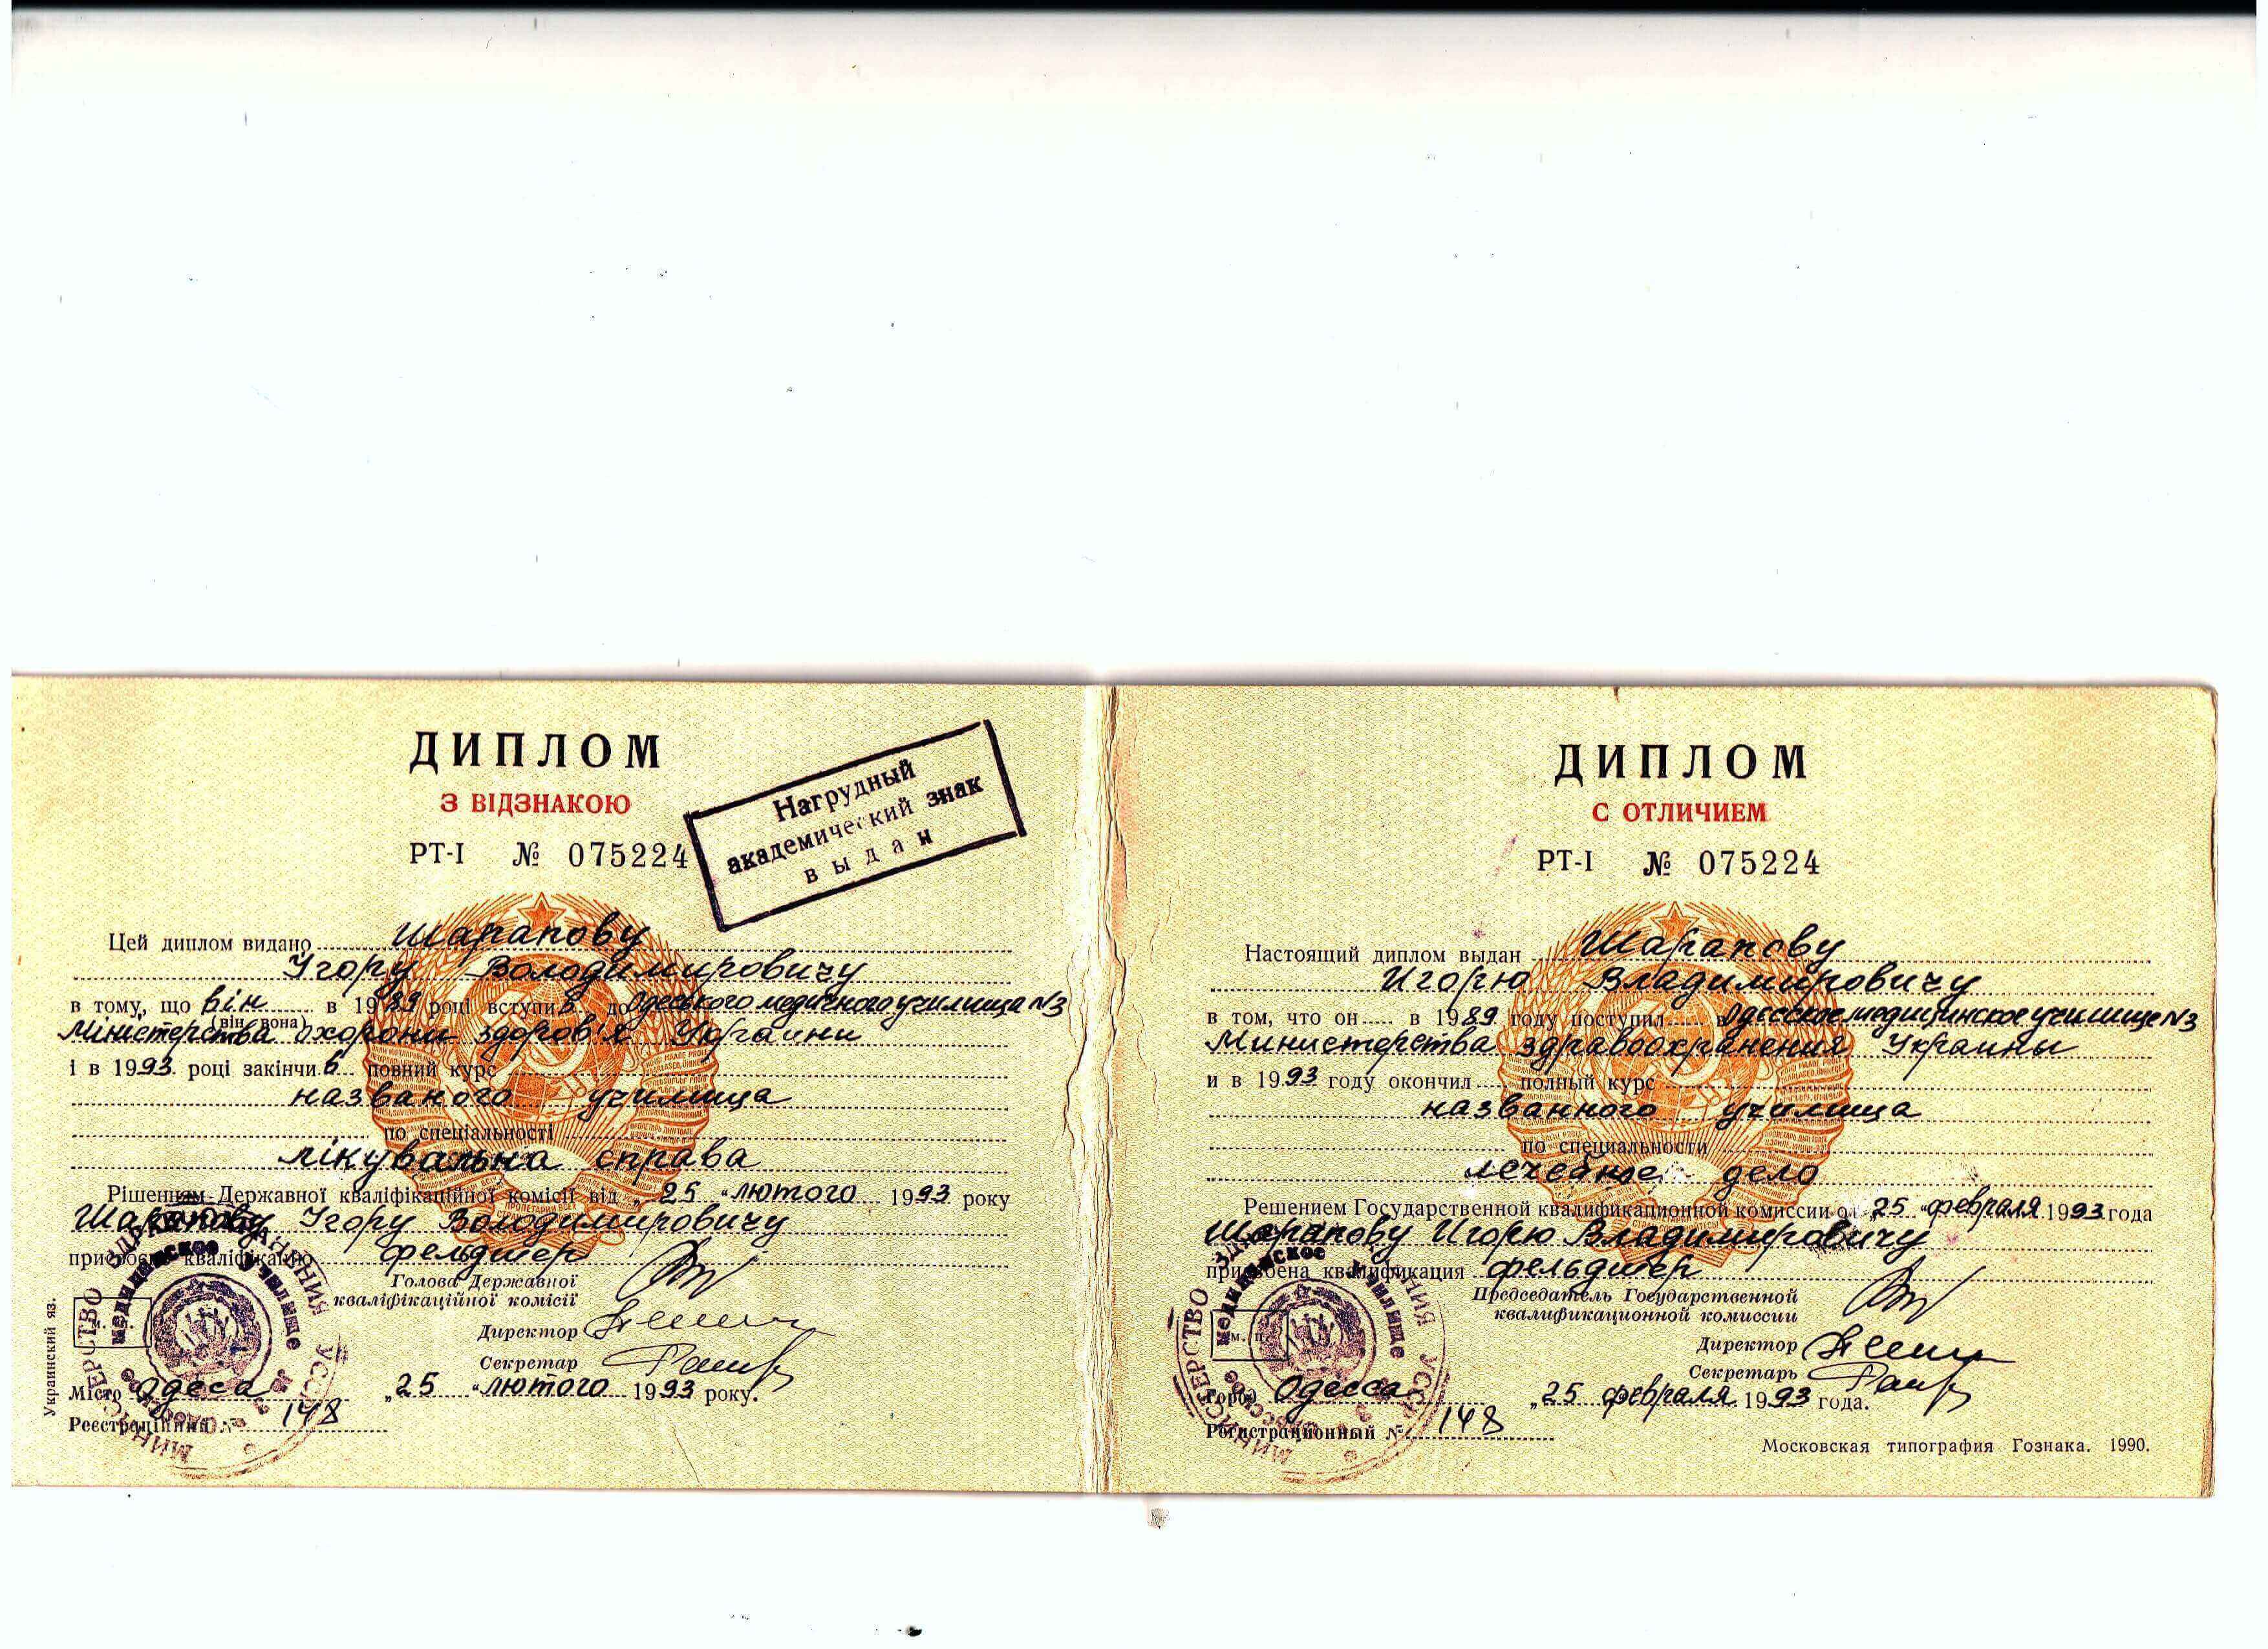 ДИПЛОМ
З ВІДЗНАКОЮ
РТ-I № 075224
Нагрудный
академический знак
выдан
Цей диплом видано Шарапову
Ігору Володимировичу
в тому, що він в 1989 році вступив до Одеського медичного училища №3
(він, вона)
Міністерства охорони здоров'я України
і в 1993 році закінчив повний курс
названого училища
по спеціальності
лікувальна справа
Рішенням Державної кваліфікаційної комісії від „25" лютого 1993 року
Шарапову Ігору Володимировичу
присвоєно кваліфікацію фельдшер
Голова Державної
кваліфікаційної комісії
Директор
Секретар
м. п.
Місто Одеса „25" лютого 1993 року.
Реєстраційний № 148
Украинский яз.
МИНИСТЕРСТВО ЗДРАВООХРАНЕНИЯ УССР
Одесское медицинское училище № 3
ДИПЛОМ
С ОТЛИЧИЕМ
РТ-I № 075224
Настоящий диплом выдан Шарапову
Игорю Владимировичу
в том, что он в 1989 году поступил в Одесское медицинское училище №3
Министерства здравоохранения Украины
и в 1993 году окончил полный курс
названного училища
по специальности
лечебное дело
Решением Государственной квалификационной комиссии от „25" февраля 1993 года
Шарапову Игорю Владимировичу
присвоена квалификация фельдшер
Председатель Государственной
квалификационной комиссии
Директор
Секретарь
м. п.
Город Одесса „25" февраля 1993 года.
Регистрационный № 148
Московская типография Гознака. 1990.
МИНИСТЕРСТВО ЗДРАВООХРАНЕНИЯ УССР
Одесское медицинское училище № 3